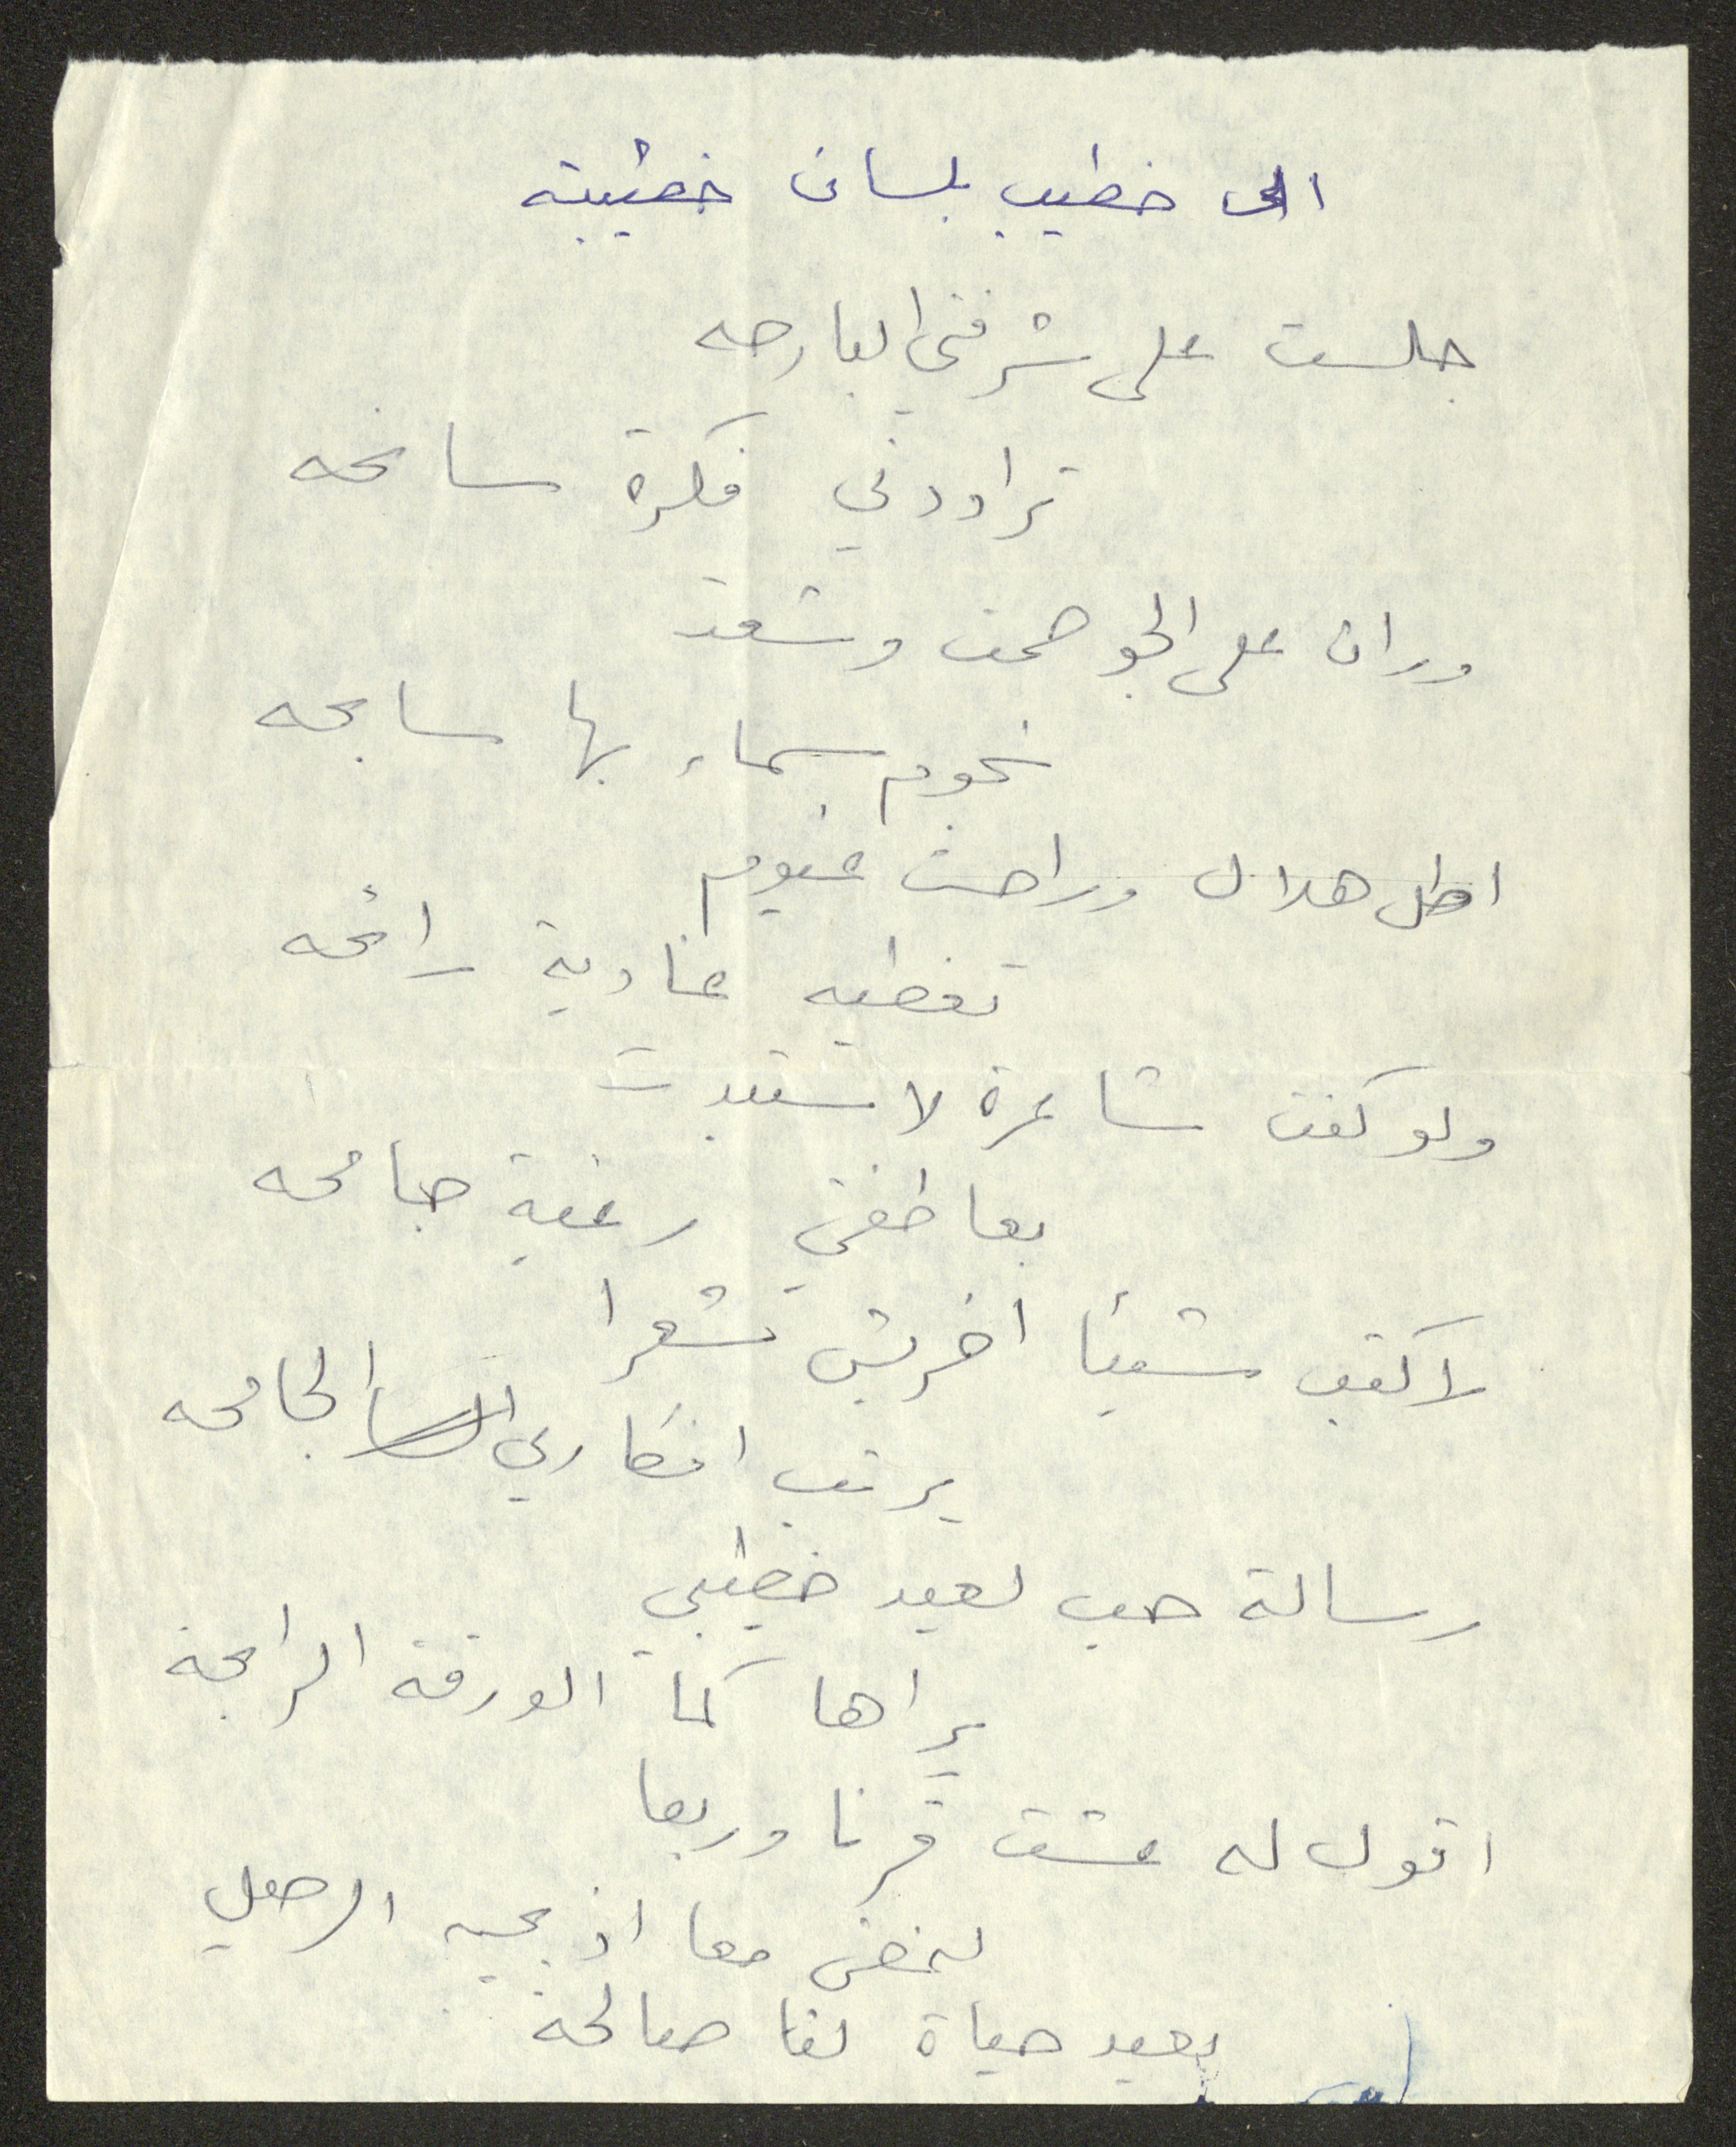 الى خطيب بلسان خطيبته
جلست على شرفتي البارحه
تراودني فكرة سانحه
وران على الجو صمت وشعت
نجوم سماء بها سابحه
اطل هلال وراحت غيوم
تغطيه غادية رائحه
ولو كنت شاعرة لاستبدت
بعاطفتي رغبة جامحه
لاكتب شيئا اخربش شعرا
يرتب افكاري الجامحه
رسالة حب لعيد خطيبي
يراها كما الورقة الرابحة
اقول له عشت قرنا وربعا
لنمضي معا اذ يجيء الرحيل
بعيد حياة لنا صالحة